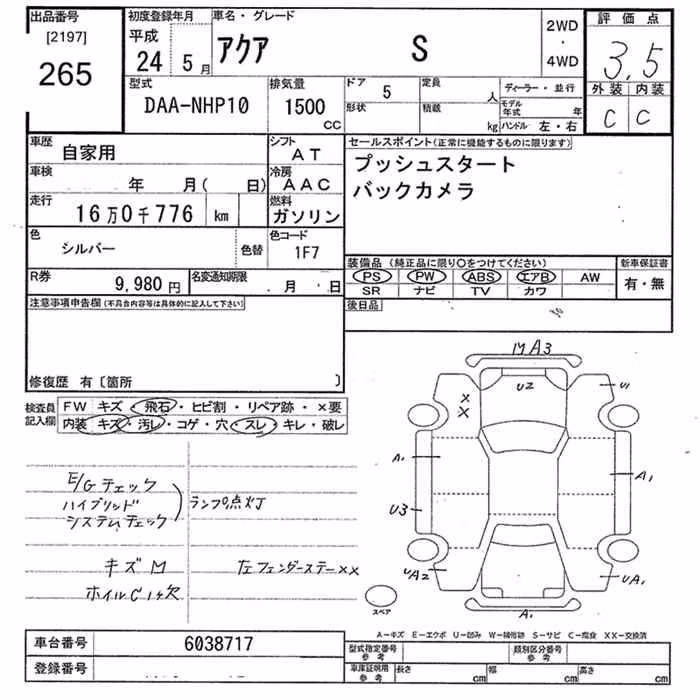 出品番号
[2197]
265
初度登録年月
平成
24 5月
車名・グレード
アクア S
2WD
・
4WD
評価点
3.5
外装 内装
C C
型式
DAA-NHP10
排気量
1500
CC
ドア 5
形状
定員 人
積載 kg
ディーラー・並行
モデル年式 年
ハンドル 左・右
車歴
自家用
シフト
AT
車検
年 月( 日)
冷房
AAC
走行
16万0千776 km
燃料
ガソリン
色
シルバー
色替
色コード
1F7
R券
9,980円
名変通知期限
月 日
セールスポイント(正常に機能するものに限ります)
プッシュスタート
バックカメラ
装備品(純正品に限り○をつけてください)
PS PW ABS エアB AW
SR ナビ TV カワ
新車保証書
有・無
後日品
注意事項申告欄(不具合内容等は具体的に記入して下さい)
修復歴 有〔箇所 〕
検査員
記入欄
FW キズ・飛石・ヒビ割・リペア跡・×要
内装 キズ・汚レ・コゲ・穴・スレ・キレ・破レ
E/Gチェック
ハイブリッド
システムチェック
ランプ点灯
キズM
ホイルC1ヶ欠
左フェンダーステー××
MA3
U2
U1
×
×
A1
A1
U3
UA2
UA1
A1
スペア
A-キズ E-エクボ U-凹み W-補修跡 S-サビ C-腐食 XX-交換済
車台番号
6038717
登録番号
型式指定番号
参考
類別区分番号
参考
車庫証明用
参考
長さ cm
幅 cm
高さ cm